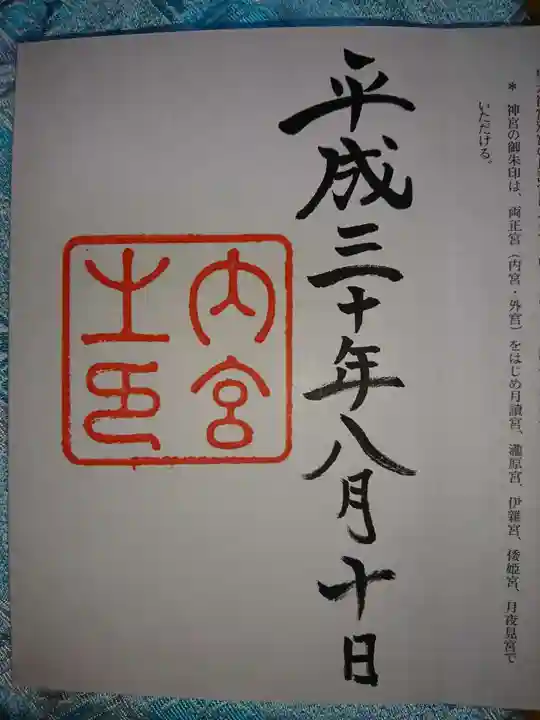 * 神宮の御朱印は、両正宮（内宮・外宮）をはじめ月讀宮、瀧原宮、伊雜宮、倭姫宮、月夜見宮で
いただける。
平成三十年八月十日
内宮
之印